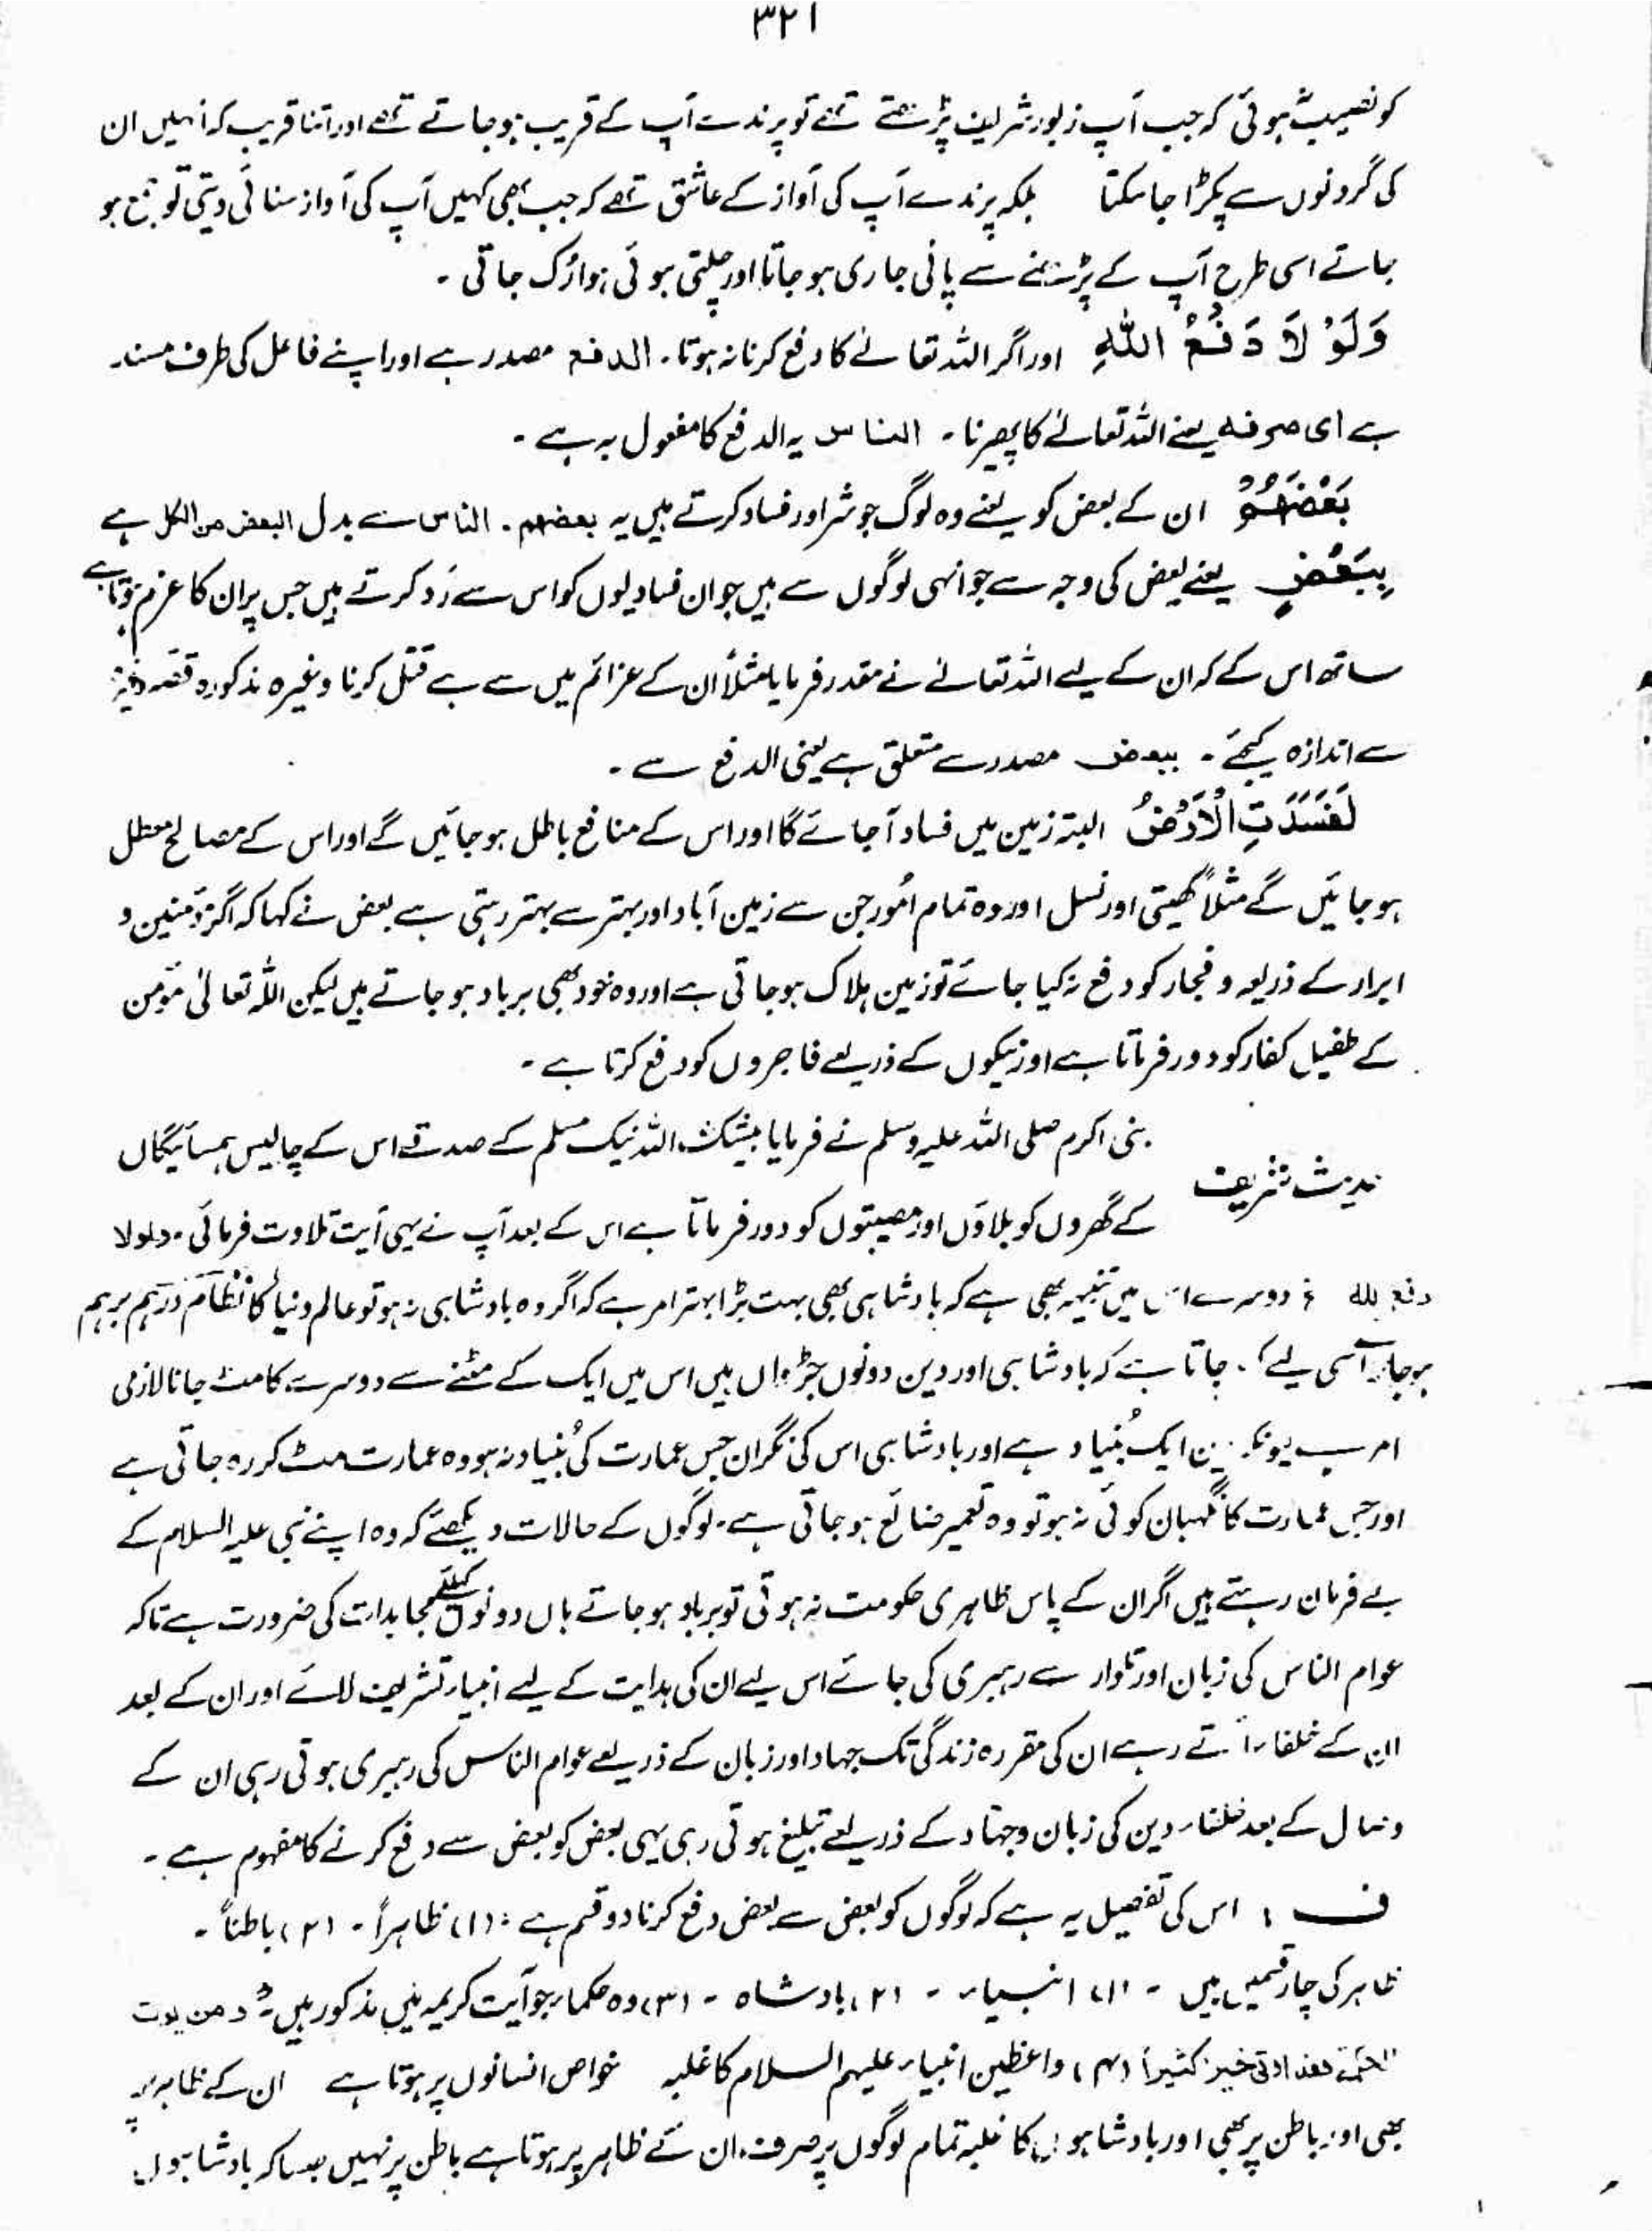 ۳۲۱
کو نصیب ہوئی کہ جب آپ زبور شریف پڑھتے تھے تو پرندے آپ کے قریب ہو جاتے تھے اور اتنا قریب کہ انہیں ان
کی گردنوں سے پکڑا جا سکتا بلکہ پرندے آپ کی آواز کے عاشق تھے کہ جب بھی کہیں آپ کی آواز سنائی دیتی تو جمع ہو
جاتے اسی طرح آپ کے پڑھنے سے پانی جاری ہو جاتا اور چلتی ہوئی ہوا رُک جاتی ۔
وَلَوْ لَا دَفْعُ اللهِ اور اگر اللہ تعالےٰ کا دفع کرنا نہ ہوتا۔ الدفع مصدر ہے اور اپنے فاعل کی طرف مسند
ہے ای صرفہ یعنے اللہ تعالےٰ کا پھیرنا ۔ الناس یہ الدفع کا مفعول بہ ہے ۔
بَعْضَهُمْ ان کے بعض کو یعنے وہ لوگ جو شر اور فساد کرتے ہیں یہ بعضهم۔ الناس سے بدل البعض من الکل ہے
بِبَعْضٍ یعنے بعض کی وجہ سے جو انہی لوگوں سے ہیں جو ان فسادیوں کو اس سے رَد کرتے ہیں جس پر ان کا عزم ہوتا ہے
ساتھ اس کے کہ ان کے لیے اللہ تعالےٰ نے مقدر فرمایا مثلاً ان کے عزائم میں سے ہے قتل کرنا وغیرہ مذکورہ قصہ وغیرہ
سے اندازہ کیجئے ۔ ببعض مصدر سے متعلق ہے یعنی الدفع سے ۔
لَفَسَدَتِ الْاَرْضُ البتہ زمین میں فساد آ جائے گا اور اس کے منافع باطل ہو جائیں گے اور اس کے مصالح معطل
ہو جائیں گے مثلاً کھیتی اور نسل اور وہ تمام اُمور جن سے زمین آباد اور بہتر سے بہتر رہتی ہے بعض نے کہا کہ اگر مؤمنین و
ابرار کے ذریعہ و فجار کو دفع نہ کیا جائے تو زمین ہلاک ہو جاتی ہے اور وہ خود بھی برباد ہو جاتے ہیں لیکن اللہ تعالیٰ مؤمن
کے طفیل کفار کو دور فرماتا ہے اور نیکوں کے ذریعے فاجروں کو دفع کرتا ہے ۔
نبی اکرم صلی اللہ علیہ وسلم نے فرمایا بیشک اللہ نیک مسلم کے صدقے اس کے چالیس ہمسائیگاں
حدیث شریف
کے گھروں کو بلاؤں اور مصیبتوں کو دور فرماتا ہے اس کے بعد آپ نے یہی آیت تلاوت فرمائی ۔ ولولا
دفع الله دوسرے اس میں تنبیہہ بھی ہے کہ بادشاہی بھی بہت بڑا بہتر امر ہے کہ اگر وہ بادشاہی نہ ہو تو عالم دنیا کا نظام درہم برہم
ہو جائے اسی لیے جاتا ہے کہ بادشاہی اور دین دونوں جڑواں ہیں اس میں ایک کے مٹنے سے دوسرے کا مٹ جانا لازمی
امر ہے کیونکہ دین ایک بُنیاد ہے اور بادشاہی اس کی نگران جس عمارت کی بُنیاد نہ ہو وہ عمارت مٹ کر رہ جاتی ہے
اور جس عمارت کا نگہبان کوئی نہ ہو تو وہ تعمیر ضائع ہو جاتی ہے ۔ لوگوں کے حالات دیکھئے کہ وہ اپنے نبی علیہ السلام کے
بے فرمان رہتے ہیں اگر ان کے پاس ظاہری حکومت نہ ہوتی تو برباد ہو جاتے ہاں دونوں کیلئے مجاہدات کی ضرورت ہے تاکہ
عوام الناس کی زبان اور تلوار سے رہبری کی جائے اس لیے ان کی ہدایت کے لیے انبیاء تشریف لائے اور ان کے بعد
ان کے خلفاء آتے رہے ان کی مقررہ زندگی تک جہاد اور زبان کے ذریعے عوام الناس کی رہبری ہوتی رہی ان کے
وصال کے بعد خلفاء دین کی زبان و جہاد کے ذریعے تبلیغ ہوتی رہی یہی بعض کو بعض سے دفع کرنے کا مفہوم ہے ۔
ف : اس کی تفصیل یہ ہے کہ لوگوں کو بعض سے بعض دفع کرنا دو قسم ہے : (۱) ظاہراً ۔ (۲) باطناً ۔
ظاہر کی چار قسمیں ہیں ۔ (۱) انبیاء ۔ (۲) بادشاہ ۔ (۳) وہ حکماء جو آیت کریمہ میں مذکور ہیں ۔ ومن یوت
الحکمة فقد اوتی خیرا کثیرا (۴) واعظین انبیاء علیہم السلام کا غلبہ خواص انسانوں پر ہوتا ہے ان کے ظاہر پر
بھی اور باطن پر بھی اور بادشاہوں کا غلبہ تمام لوگوں پر صرف ان کے ظاہر پر ہوتا ہے باطن پر نہیں جیسا کہ بادشاہوں